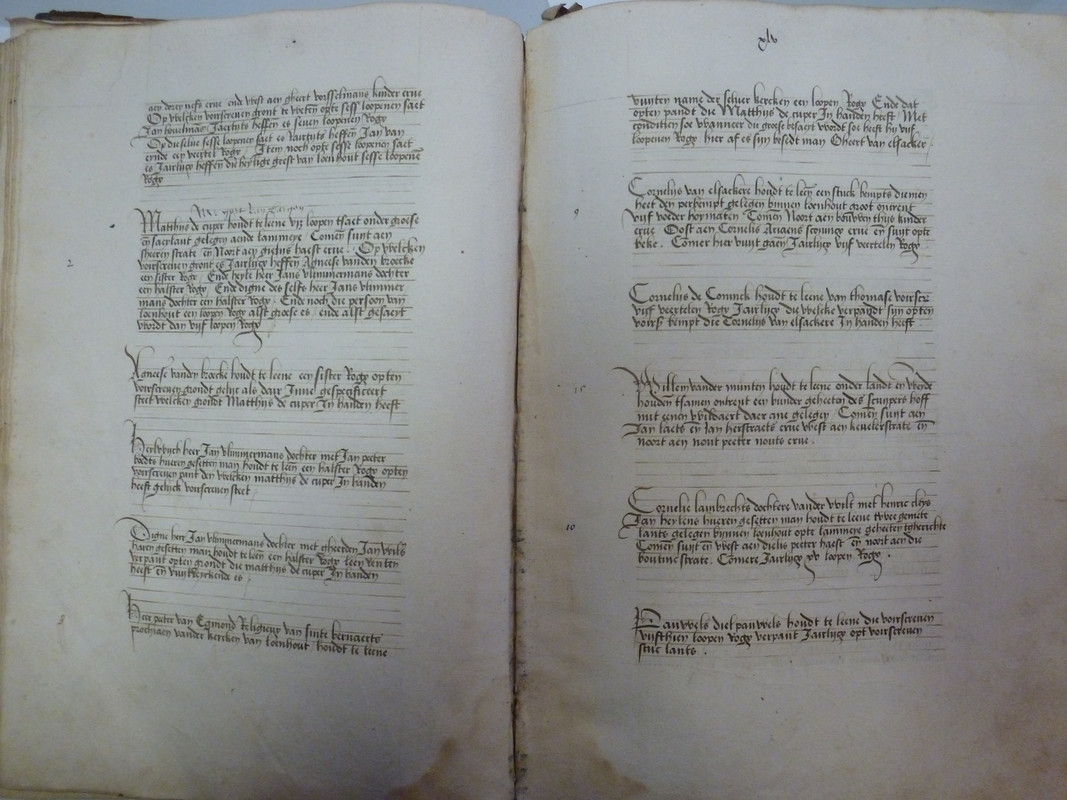 aen dorey nefs erue ende west aen gheert vorsselmans kinder erue
Op welcken vorscreuen gront te weten opte sesse loopenen saet
Jan bouelmas Jaerlycx heffen es seuen loopenen Rogx
Op die selue sesse loopenen saet es Jaerlycx heffen Jan van
eynde een veertel Rogx. Item noch opte sesse loopenen saet
es Jaerlycx heffen die heylige geest van loenhout sesse loopene
Rogx
Matthijs de cuper houdt te leene vijf loopen tsaet onder groese
en saerlant gelegen aende lammeye. Comen sunt aen
sheeren strate en Noort aen gielus haest erue. Op welcken
2
voirscreuen gront es Jairlijcx heffen Agneese vanden broecke
een sister Rogx. Ende heyle heer Jans vlimmermans dochter
een halster Rogx. Ende digne des selfs heer Jans vlimmer
mans dochter een halster Rogx. Ende noch die persoon van
loenhout een loopen Rogx alst groese es, ende alst gesaeyt
wordt dan vijf loopen Rogx
Agneese vanden broecke houdt te leene een sister Rogx opten
voirscreuen grondt gelijc als dair Inne gespecificeert
steet welcken grondt Matthijs de cuper In handen heeft
heer Jan vlimmermans dochter met Jan peeter
hueren gesetten man houdt te leen een halster Rogx opten
voirscreuen pant den welcken matthijs de cuper In handen
heeft gelijck voirscreuen steet
Digne heer Jan vlimmermans dochter met gheerden Jan wils
haren gesetten man houdt te leen een halster Rogx
verpant opten grondt die matthijs de cuper In handen
heeft en es
Heer peeter van Egmond Religieux van sinte bernaerts
prochiaen vander kercken van loenhout houdt te leene
xlv
vuyten name der seluer kercken een loopen Rogx Ende dat
opten pandt die Matthijs de cuper In handen heeft Met
conditien soe wanneer die groese besaeyt wordt soe heeft hy vijf
loopenen Rogx hier af es sijn besedt man Gheert van elsacker
Cornelis van elsackere houdt te leen een stuck bempts diemen
heet den gelegen binnen loenhout groot omtrent
9
vijf voeder hoymaten Comen Noort aen bouwen thijs kinder
erue Oost aen Cornelis Ariaens sconincx erue en sunt opte
beke. Comer hier vuyt gaen Jairlijcx vijf veertelen Rogx
Cornelis de Coninck houdt te leene van thomase voirscr
vijf veertelen Rogx Jairlijcx die welcke verpandt sijn opten
voirs bempt die Cornelis van elsackere In handen heeft
Willem vander munten houdt te leene onder landt en weyde
15
houden tsamen ontrent een bunder geheeten des scuypers hoff
met eenen wildaert daer ane gelegen Comen sunt aen
Jan laets en Jan herstraets erue west aen keuelerstrate en
noort aen nout peeter nouts erue.
Cornelie lambrechts dochtere vander wilt met henric
Jan heylens hueren gesetten man houdt te leene twee gemete
10
lants gelegen bynnen loenhout opte lammeye geheeten
Comen suyt en west aen dielis peeter haest en noort aen die
boutme strate. Comere Jairlijcx xv loopen Rogx.
Pauwels diel pauwels houdt te leene die voirscreuen
vijfthien loopen Rogx verpant Jairlijcx opt voirscreuen
stuc lants.